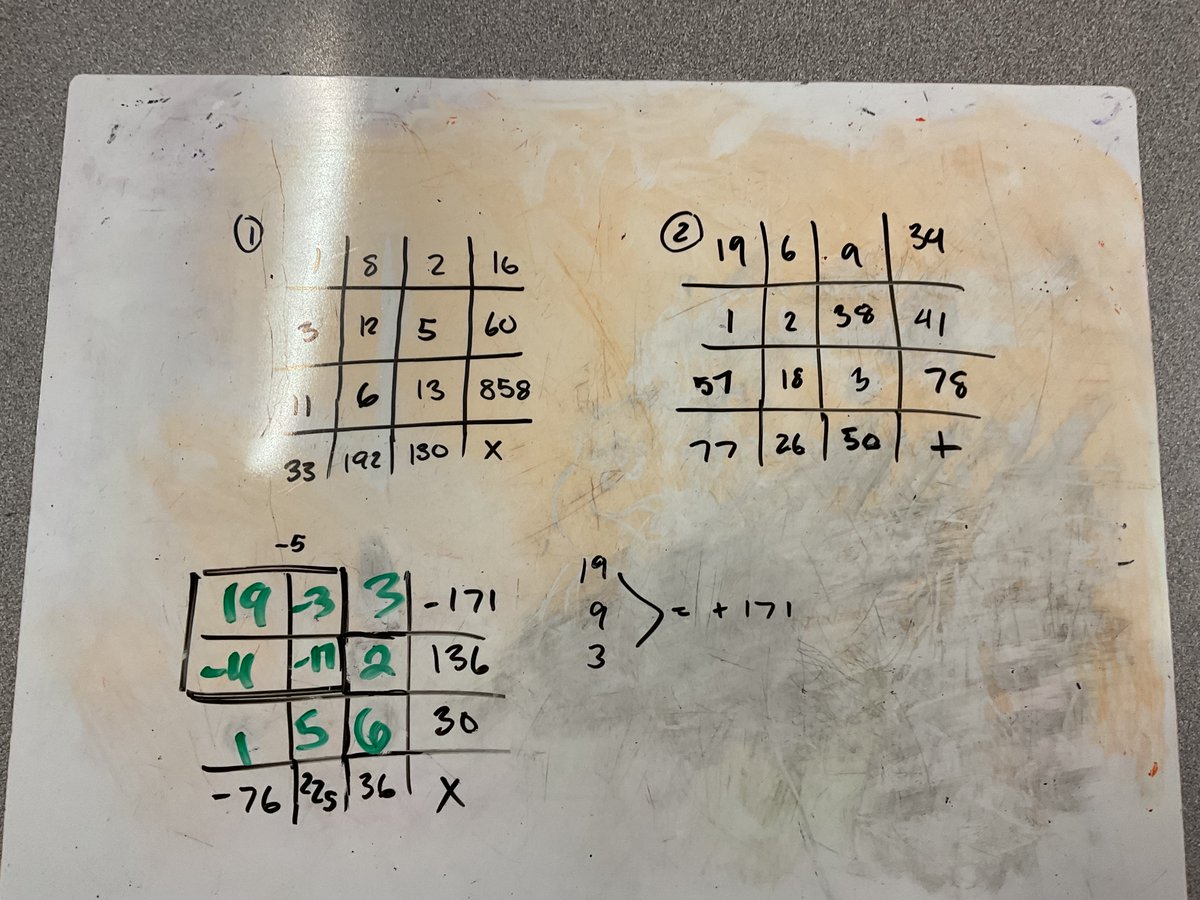 ① 1 8 2 16
3 12 5 60
11 6 13 858
33 192 130 X
② 19 6 9 34
1 2 38 41
57 18 3 78
77 26 50 +
-5
19 -3 3 -171
-4 -17 2 136
1 5 6 30
-76 225 36 X
19
9 = + 171
3